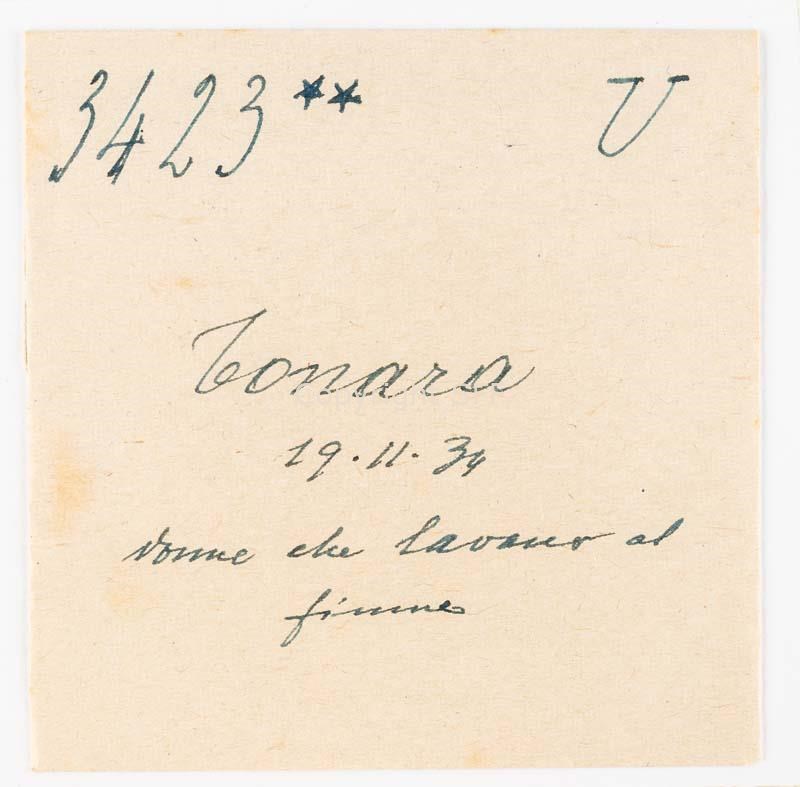 3423** U
Tonara
19.11.34
donne che lavano al
fiume